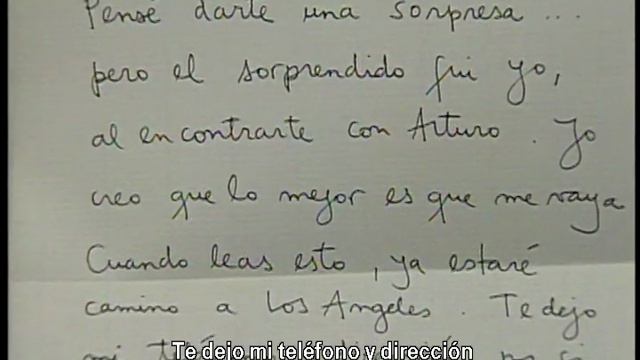 Pensé darle una sorpresa...
pero el sorprendido fui yo,
al encontrarte con Arturo. Yo
creo que lo mejor es que me vaya
Cuando leas esto, ya estaré
camino a Los Angeles. Te dejo
mi
Te dejo mi teléfono y dirección